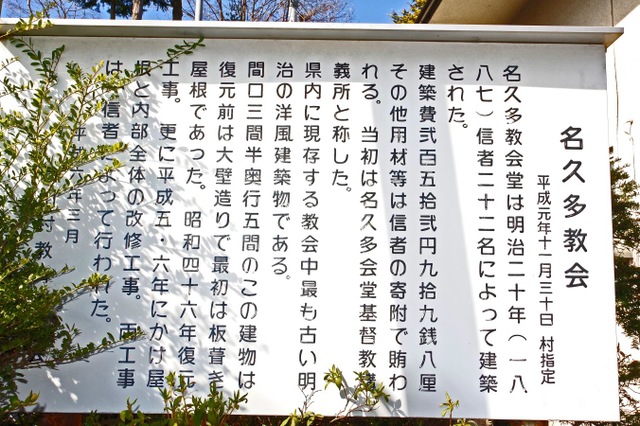 名久多教会
平成元年十一月三十日 村指定
名久多教会堂は明治二十年（一八
八七）信者二十二名によって建築
された。
建築費弐百五拾弐円九拾九銭八厘
その他用材等は信者の寄附で賄わ
れる。 当初は名久多会堂基督教講
義所と称した。
県内に現存する教会中最も古い明
治の洋風建築物である。
間口三間半奥行五間のこの建物は
復元前は大壁造りで最初は板葺き
屋根であった。昭和四十六年復元
工事。 更に平成五・六年にかけ屋
根と内部全体の改修工事。両工事
は 信者によって行われた。
平成六年三月
村教